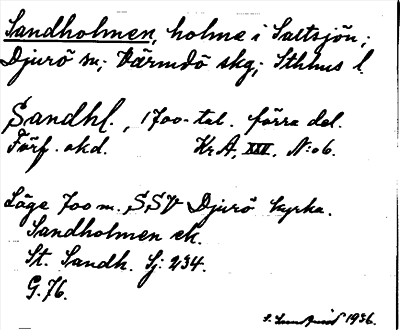 Sandholmen, holme i Saltsjön,;
Djurö sn; Värmdö skg; Sthlms l.
Sandhl., 1700-tal. förra del.
Förf. okd. Kr A, XXI, N:o 6.
Läge 700 m. SSV Djurö kyrka.
Sandholmen ek.
St. Sandh. Sj: 234.
G. 76.
1936.